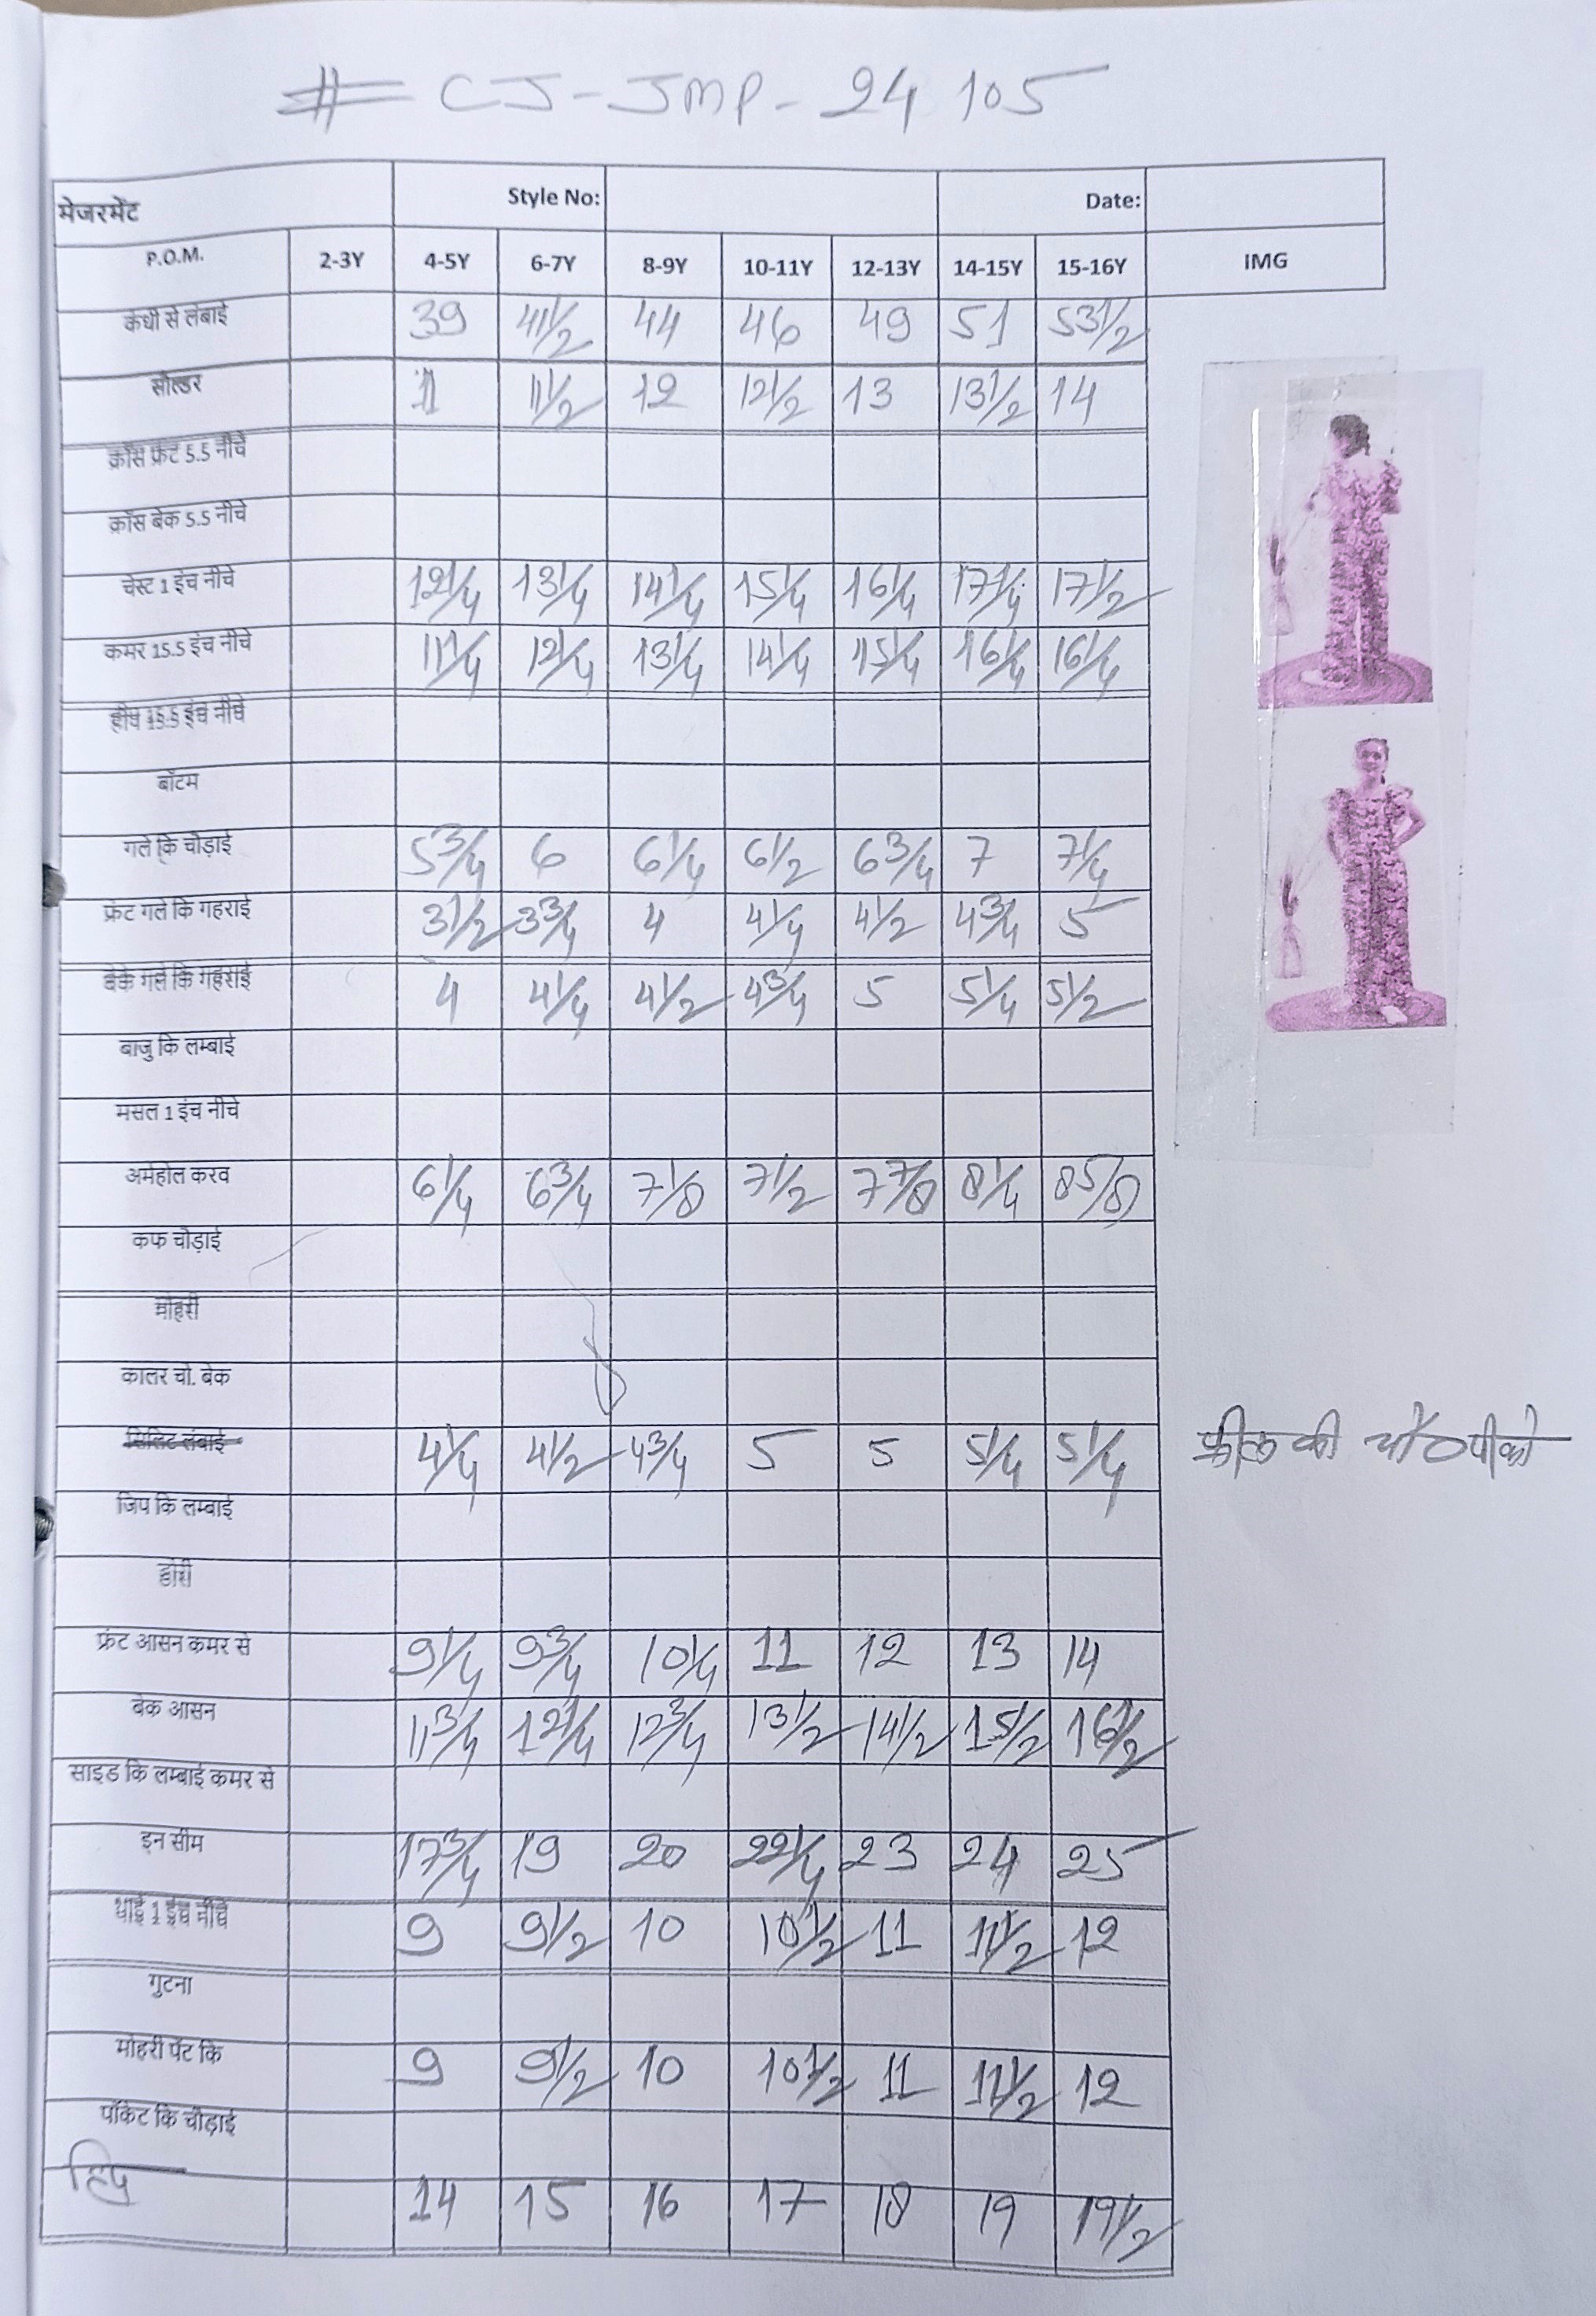 # CJ-JMP-24105
मेजरमेंट Style No: Date:
P.O.M. 2-3Y 4-5Y 6-7Y 8-9Y 10-11Y 12-13Y 14-15Y 15-16Y IMG
कंधी से लंबाई 39 41 1/2 44 46 49 51 53 1/2
सोल्डर 11 11 1/2 12 12 1/2 13 13 1/2 14
क्रॉस फ्रंट 5.5 नीचे
क्रॉस बेक 5.5 नीचे
चेस्ट 1 इंच नीचे 12 1/4 13 1/4 14 1/4 15 1/4 16 1/4 17 1/4 17 1/2
कमर 15.5 इंच नीचे 11 1/4 12 1/4 13 1/4 14 1/4 15 1/4 16 1/4 16 1/4
हीप 15.5 इंच नीचे
बॉटम
गले कि चोड़ाई 5 3/4 6 6 1/4 6 1/2 6 3/4 7 7 1/4
फ्रंट गले कि गहराई 3 1/2 3 3/4 4 4 1/4 4 1/2 4 3/4 5
बेक गले कि गहराई 4 4 1/4 4 1/2 4 3/4 5 5 1/4 5 1/2
बाजु कि लम्बाई
मसल 1 इंच नीचे
अर्महोल करव 6 1/4 6 3/4 7 1/8 7 1/2 7 7/8 8 1/4 8 5/8
कफ चोड़ाई
मोहरी
कालर चो. बेक
सिलिट लंबाई 4 1/4 4 1/2 4 3/4 5 5 5 1/4 5 1/4 फ्रील की चौ०
जिप कि लम्बाई
डोरी
फ्रंट आसन कमर से 9 1/4 9 3/4 10 1/4 11 12 13 14
बेक आसन 11 3/4 12 1/4 12 3/4 13 1/2 14 1/2 15 1/2 16 1/2
साइड कि लम्बाई कमर से
इन सीम 17 3/4 19 20 22 1/4 23 24 25
थाई 1 इंच नीचे 9 9 1/2 10 10 1/2 11 11 1/2 12
गुटना
मोहरी पेंट कि 9 9 1/2 10 10 1/2 11 11 1/2 12
पॉकेट कि चौड़ाई
हिप 14 15 16 17 18 19 19 1/2